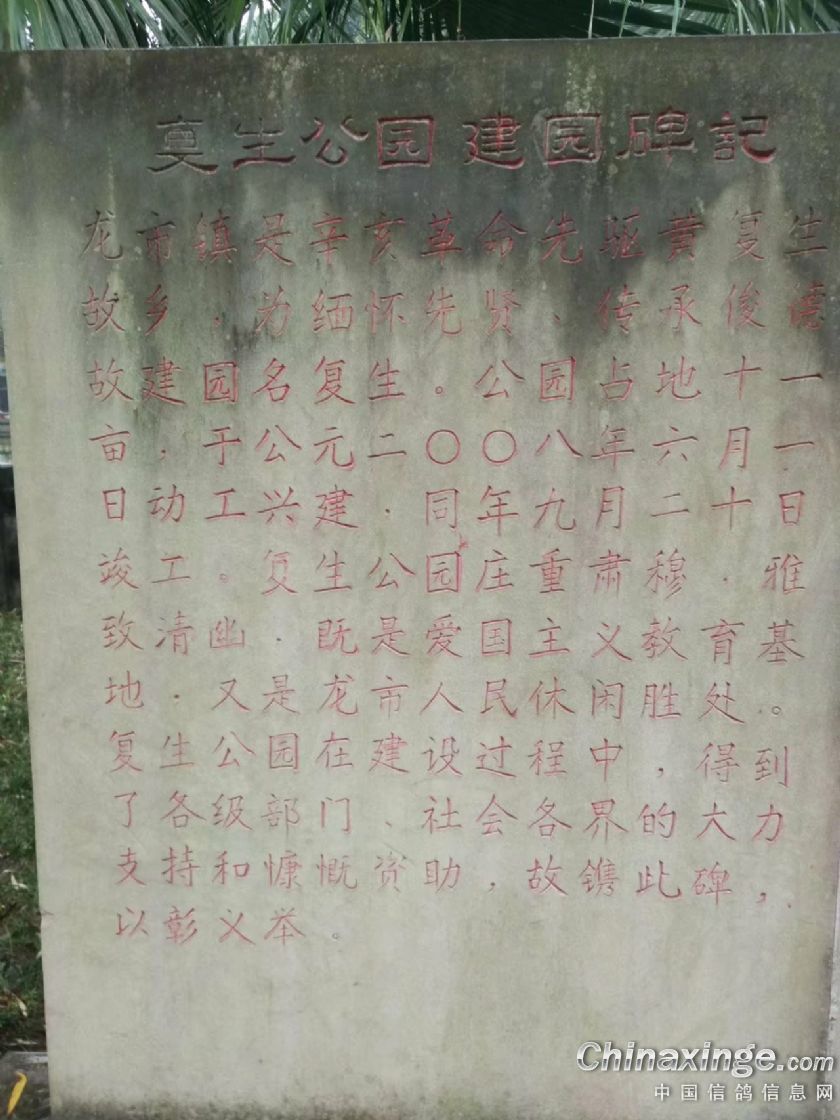 复生公园建园碑記
龙市镇是辛亥革命先驱黄复生
故乡，为缅怀先贤、传承俊德
故建园名复生。公园占地十一
亩，于公元二〇〇八年六月一
日动工兴建，同年九月二十日
竣工。复生公园庄重肃穆，雅
致清幽，既是爱国主义教育基
地，又是龙市人民休闲胜处。
复生公园在建设过程中，得到
了各级部门、社会各界的大力
支持和慷慨资助，故镌此碑，
以彰义举。
Chinaxinge.com
中国信鸽信息网